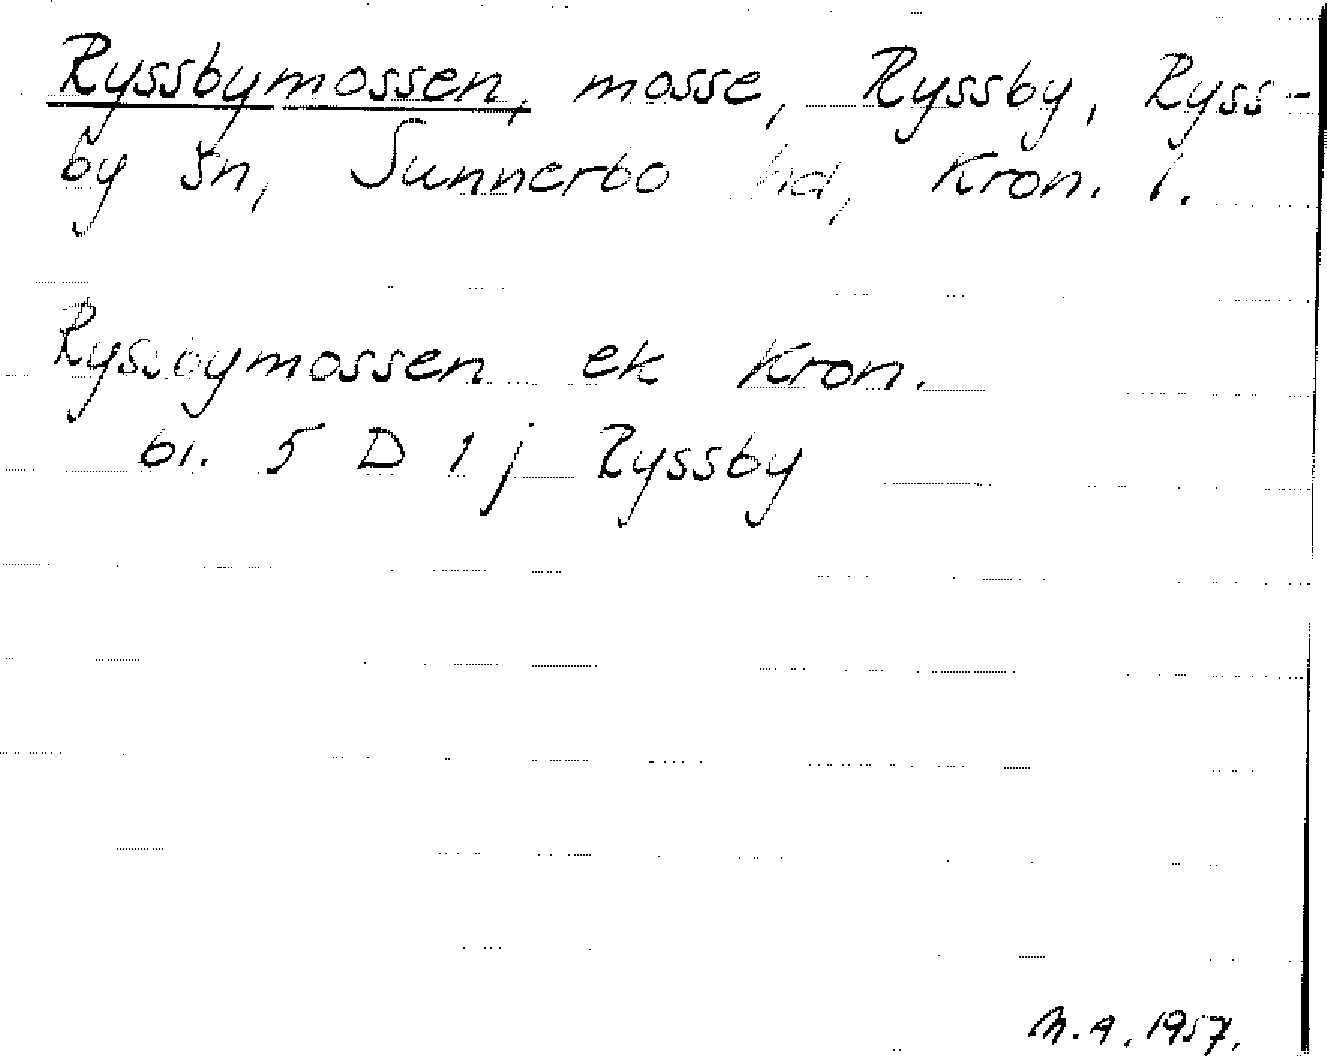 Ryssbymossen, mosse, Ryssby, Ryss-
by sn, Sunnerbo hd, Kron. l.
Ryssbymossen ek Kron.
bl. 5 D 1 j Ryssby
M.A. 1957.